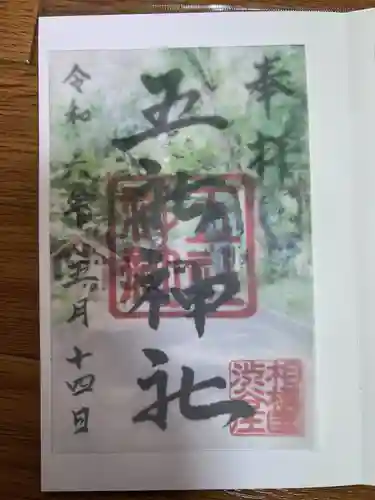 奉拝
五社神社
令和六年五月十四日
相模国
渋谷庄